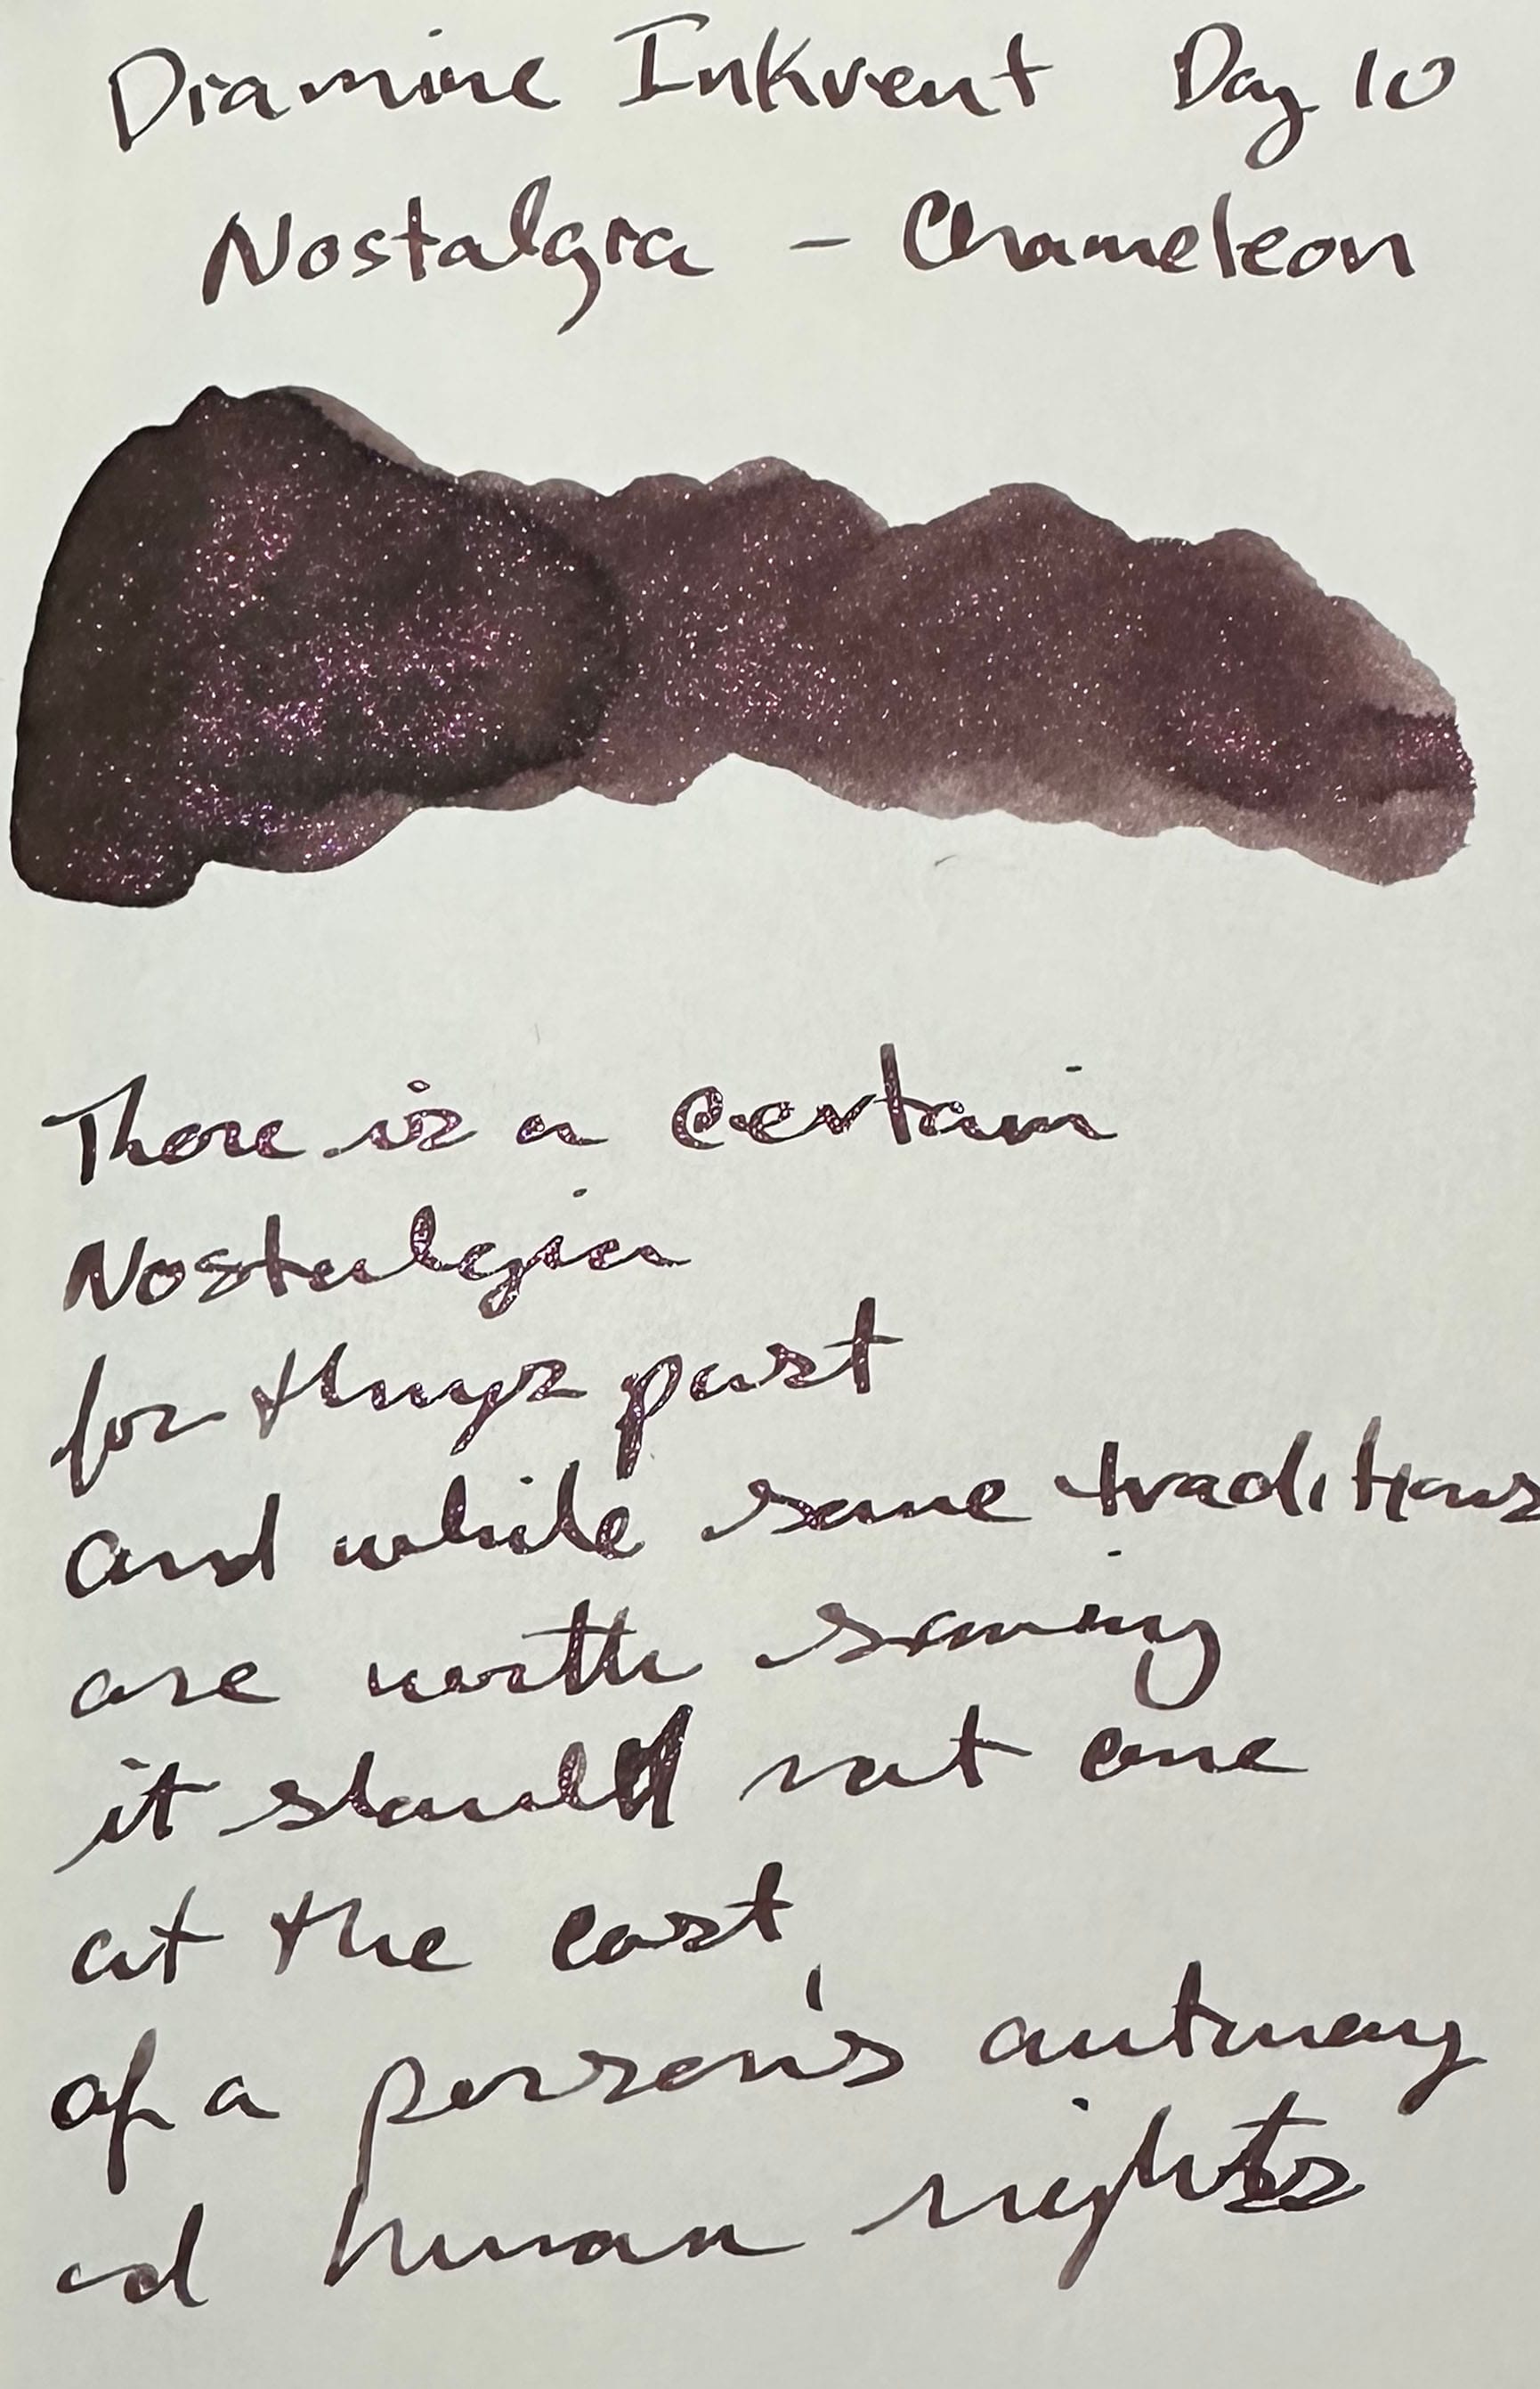 Diamine Inkvent Day 10
Nostalgia - Chameleon
There is a certain
Nostalgia
for things past
and while some traditions
are worth saving
it should not come
at the cost
of a person's autonomy
and human rights